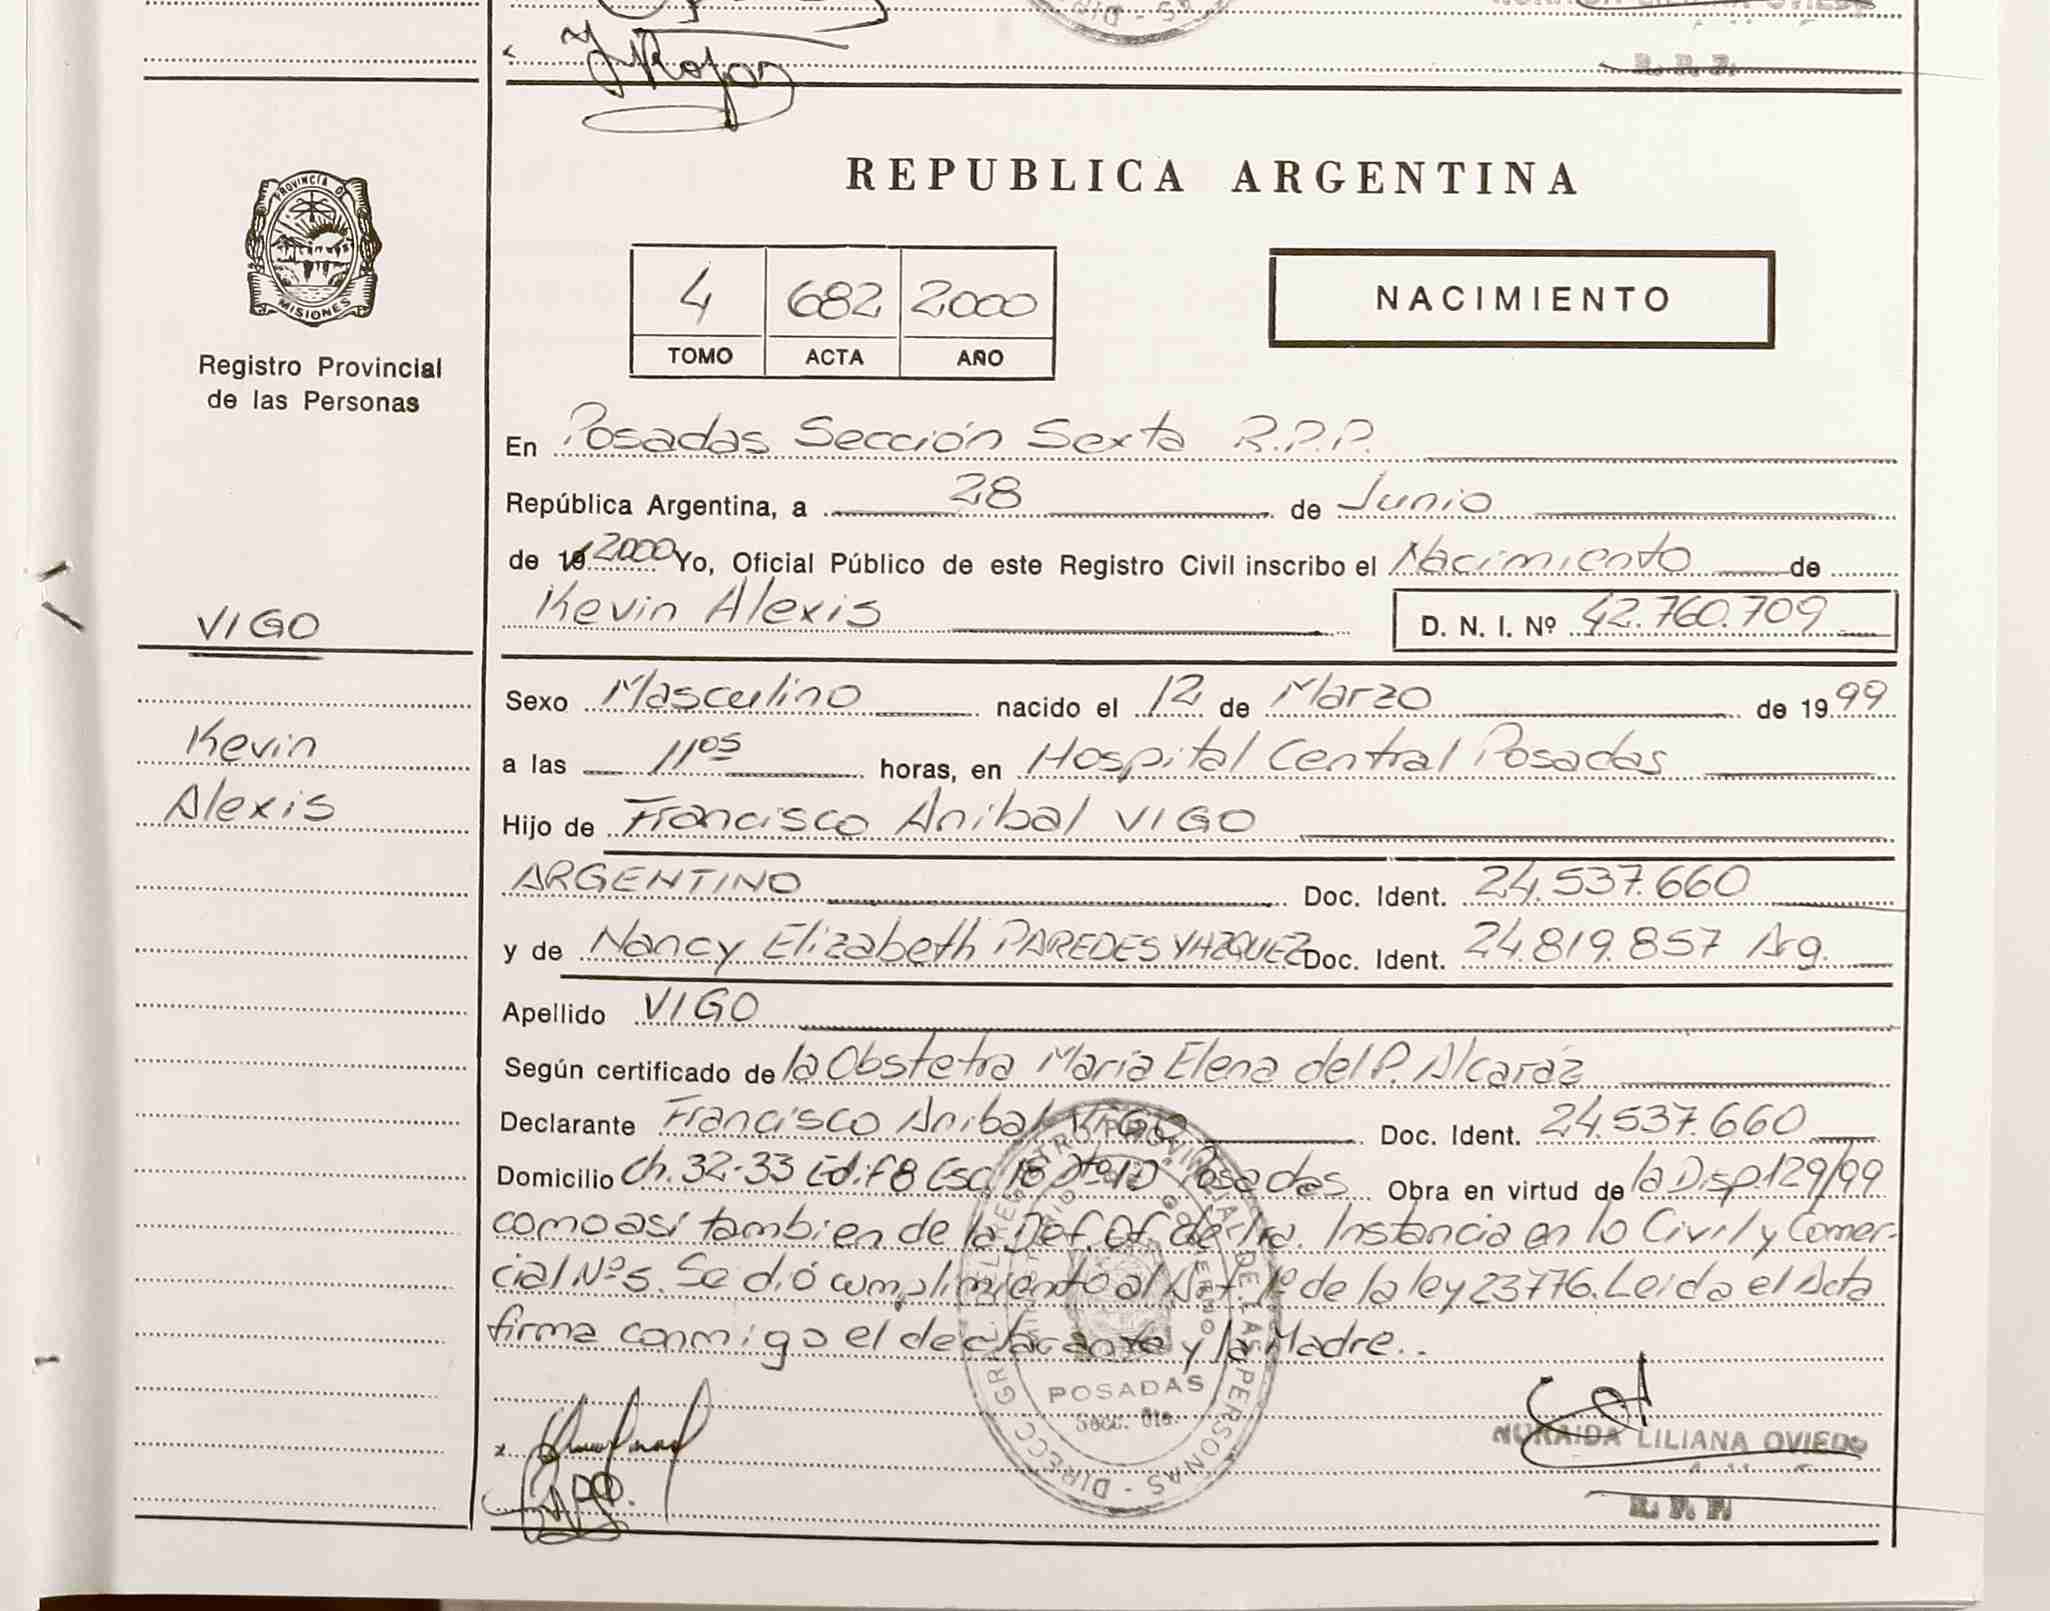 PROVINCIA DE
MISIONES
Registro Provincial
de las Personas
VIGO
Kevin
Alexis
REPUBLICA ARGENTINA
4 682 2000
TOMO ACTA AÑO
NACIMIENTO
En Posadas Sección Sexta R.P.P.
República Argentina, a 28 de Junio
de 19 2000 Yo, Oficial Público de este Registro Civil inscribo el Nacimiento de
Kevin Alexis D. N. I. Nº 42.760.709
Sexo Masculino nacido el 12 de Marzo de 1999
a las 11 05 horas, en Hospital Central Posadas
Hijo de Francisco Anibal VIGO
ARGENTINO Doc. Ident. 24.537.660
y de Nancy Elizabeth PAREDES YAZQUEZ Doc. Ident. 24.819.857 Arg.
Apellido VIGO
Según certificado de la Obstetra Maria Elena del P. Alcaráz
Declarante Francisco Anibal VIGO Doc. Ident. 24.537.660
Domicilio Ch. 32-33 Edif 8 Esc. 18 Posadas Obra en virtud de la Disp. 129/99
como asi tambien de la Def. Of. de 1ra. Instancia en lo Civil y Comer-
cial Nº 5. Se dió cumplimiento al Art. 1º de la ley 23776. Leida el Acta
firma conmigo el declarante y la Madre..
DIRECC GRAL DEL REGISTRO PROVINCIAL DE LAS PERSONAS
POSADAS
NORAIDA LILIANA OVIEDO
R. P. P.